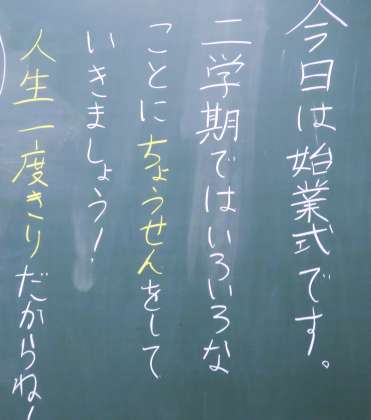 今日は始業式です。
二学期ではいろいろな
ことにちょうせんをして
いきましょう!
人生一度きりだからね!